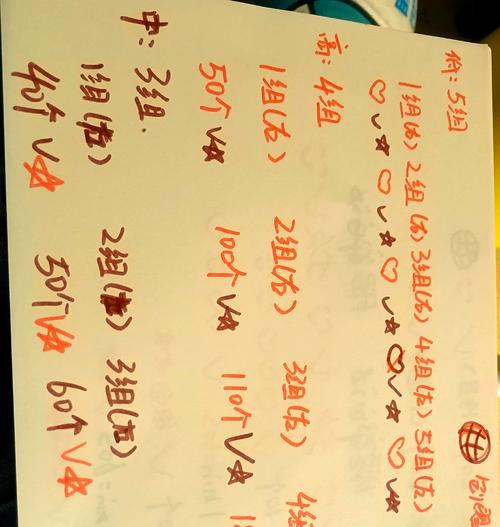 :5组
1组(右) 2组(右) 3组(右) 4组(左) 5组(左)
♡✓☆ ♡✓☆ ♡✓☆ ♡✓☆ ♡✓☆
高:4组
1组(右) 2组(右) 3组(右) 4组
50个✓☆ 100个✓☆ 110个✓☆
中:3组.
1组 2组 3组(右)
40个✓☆ 50个✓☆ 60个✓☆